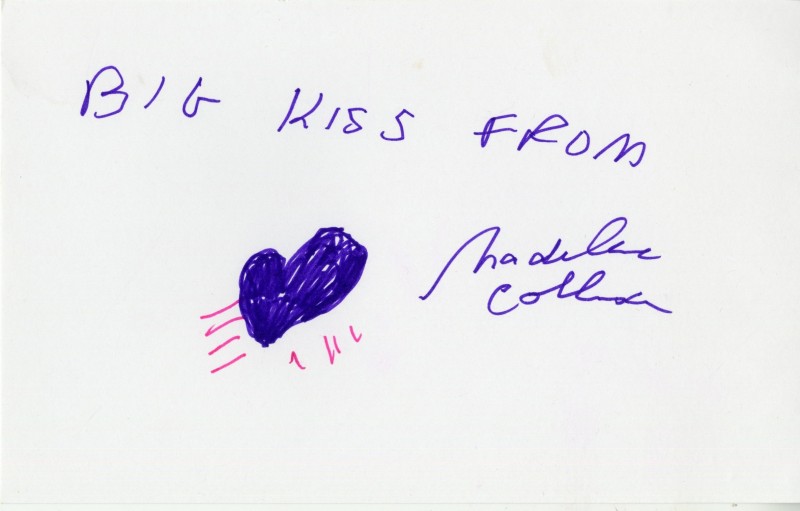 BIG KISS FROM
Madeline
Collinson